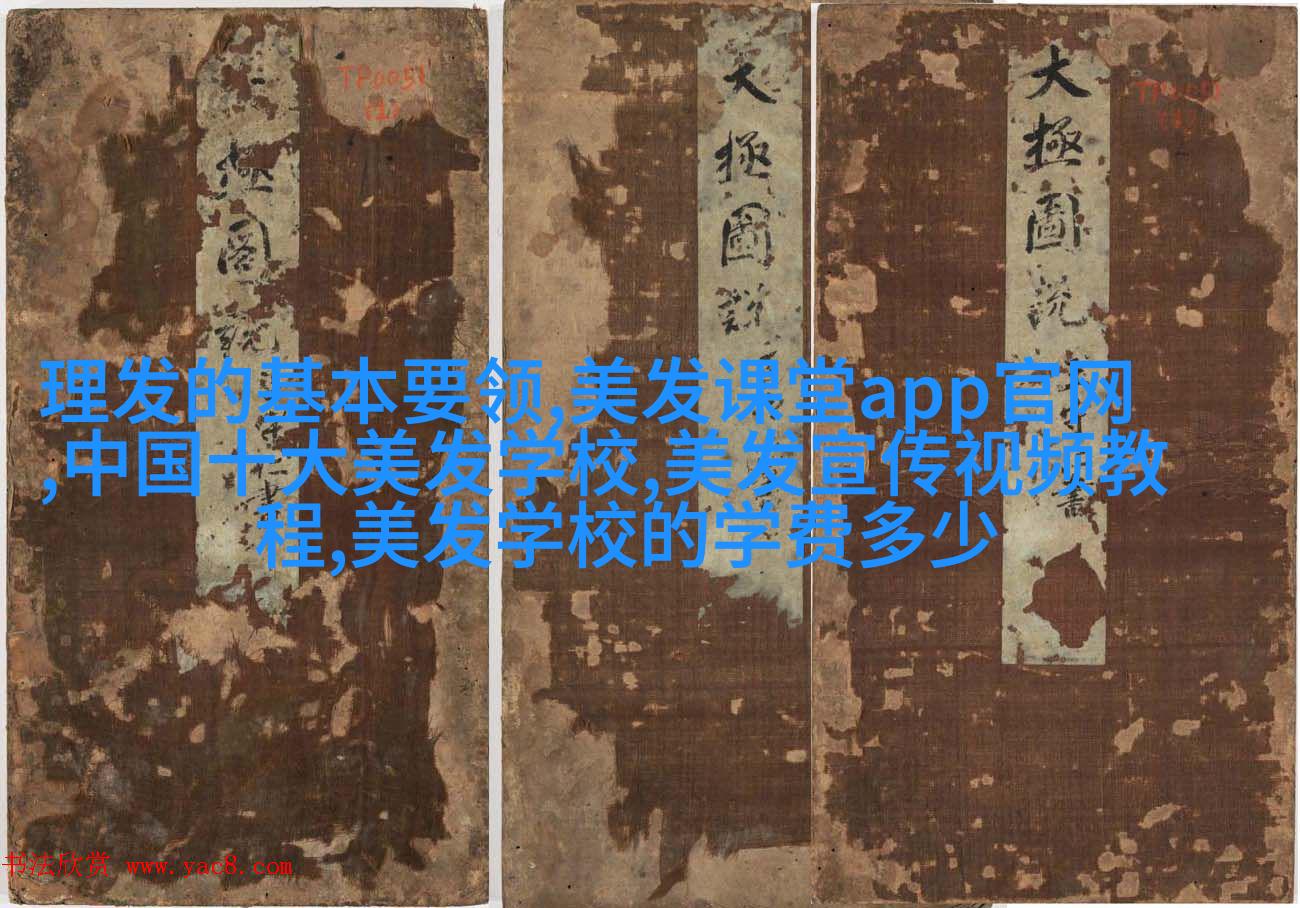 TP0051
(1)
極圖說
大極圖說
大極圖說
理发的基本要领,美发课堂app官网
,中国十大美发学校,美发宣传视频教
程,美发学校的学费多少
书法欣赏 www.yac8.com